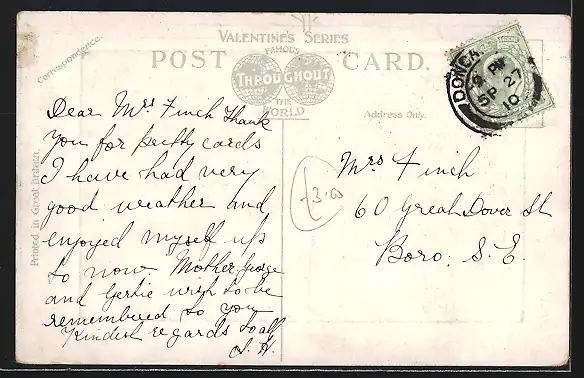 VALENTINE'S SERIES
FAMOUS
POST CARD.
THROUGHOUT
THE
WORLD
Correspondence.
Address Only.
Printed in Great Britain.
Dear Mrs Finch Thank
you for pretty cards
I have had very
good weather and
enjoyed myself up
to now. Mother, George
and Gertie wish to be
remembered to you
Kindest regards to all
S. H.
£3.00
Mrs Finch
60 Great Dover St
Boro: S. E.
PM
SP 27
10